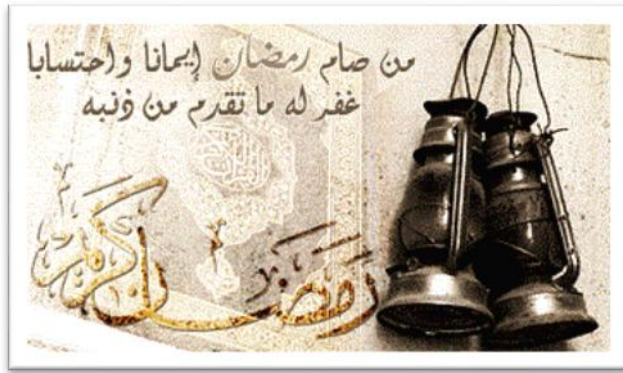 من صام رمضان إيمانا واحتسابا
غفر له ما تقدم من ذنبه
رمضان كريم